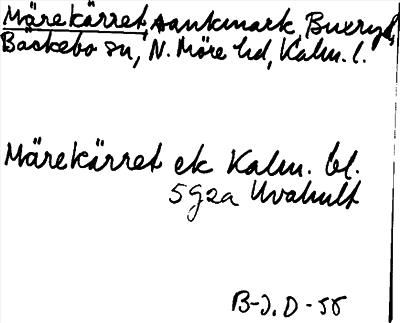 Märekärret, sankmark, Buxryd,
Bäckebo sn, N. Möre hd, Kalm. l.
Märekärret ek Kalm. bl.
5g2a Uvahult
B-J. D-55